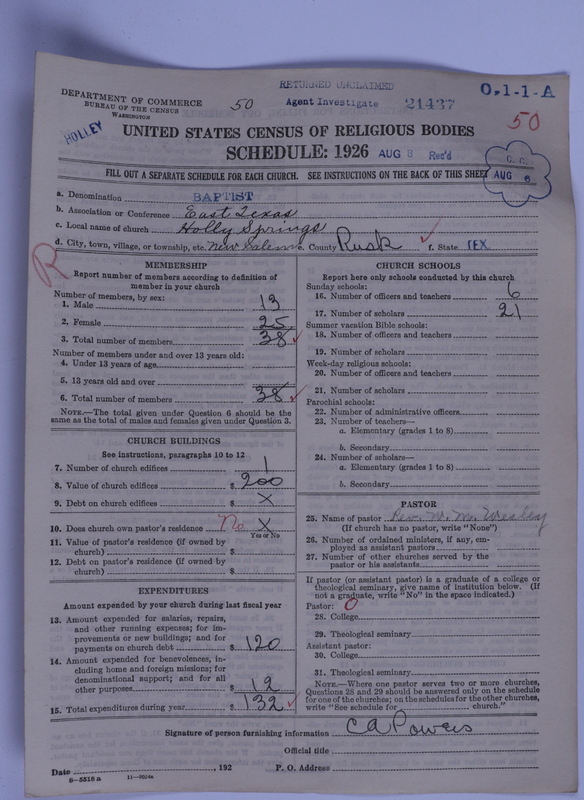 RETURNED UNCLAIMED
DEPARTMENT OF COMMERCE
BUREAU OF THE CENSUS
WASHINGTON
50 Agent Investigate 21437
O.1-1-A
50
HOLLEY
UNITED STATES CENSUS OF RELIGIOUS BODIES
SCHEDULE: 1926 AUG 8 Rec'd
C. C.
AUG 6
FILL OUT A SEPARATE SCHEDULE FOR EACH CHURCH. SEE INSTRUCTIONS ON THE BACK OF THIS SHEET
a. Denomination BAPTIST
b. Association or Conference East Texas
c. Local name of church Holly Springs
d. City, town, village, or township, etc. New Salem e. County Rusk f. State TEX.
R
MEMBERSHIP
Report number of members according to definition of
member in your church
Number of members, by sex:
1. Male 13
2. Female 25
3. Total number of members 38
Number of members under and over 13 years old:
4. Under 13 years of age
5. 13 years old and over
6. Total number of members 38
NOTE.—The total given under Question 6 should be the
same as the total of males and females given under Question 3.
CHURCH BUILDINGS
See instructions, paragraphs 10 to 12
7. Number of church edifices 1
8. Value of church edifices $ 200
9. Debt on church edifices $ X
10. Does church own pastor's residence No X
Yes or No
11. Value of pastor's residence (if owned by
church) $
12. Debt on pastor's residence (if owned by
church) $
EXPENDITURES
Amount expended by your church during last fiscal year
13. Amount expended for salaries, repairs,
and other running expenses; for im-
provements or new buildings; and for
payments on church debt $ 120
14. Amount expended for benevolences, in-
cluding home and foreign missions; for
denominational support; and for all
other purposes $ 12
15. Total expenditures during year $ 132
CHURCH SCHOOLS
Report here only schools conducted by this church
Sunday schools:
16. Number of officers and teachers 6
17. Number of scholars 21
Summer vacation Bible schools:
18. Number of officers and teachers
19. Number of scholars
Week-day religious schools:
20. Number of officers and teachers
21. Number of scholars
Parochial schools:
22. Number of administrative officers
23. Number of teachers—
a. Elementary (grades 1 to 8)
b. Secondary
24. Number of scholars—
a. Elementary (grades 1 to 8)
b. Secondary
PASTOR
25. Name of pastor Rev. W. M.
(If church has no pastor, write "None")
26. Number of ordained ministers, if any, em-
ployed as assistant pastors
27. Number of other churches served by the
pastor or his assistants
If pastor (or assistant pastor) is a graduate of a college or
theological seminary, give name of institution below. (If
not a graduate, write "No" in the space indicated.)
Pastor: O
28. College
29. Theological seminary
Assistant pastor:
30. College
31. Theological seminary
NOTE.—Where one pastor serves two or more churches,
Questions 28 and 29 should be answered only on the schedule
for one of the churches; on the schedules for the other churches,
write "See schedule for church."
Signature of person furnishing information CA Powers
Official title
Date , 192 P. O. Address
8—5518 a 11—9024a